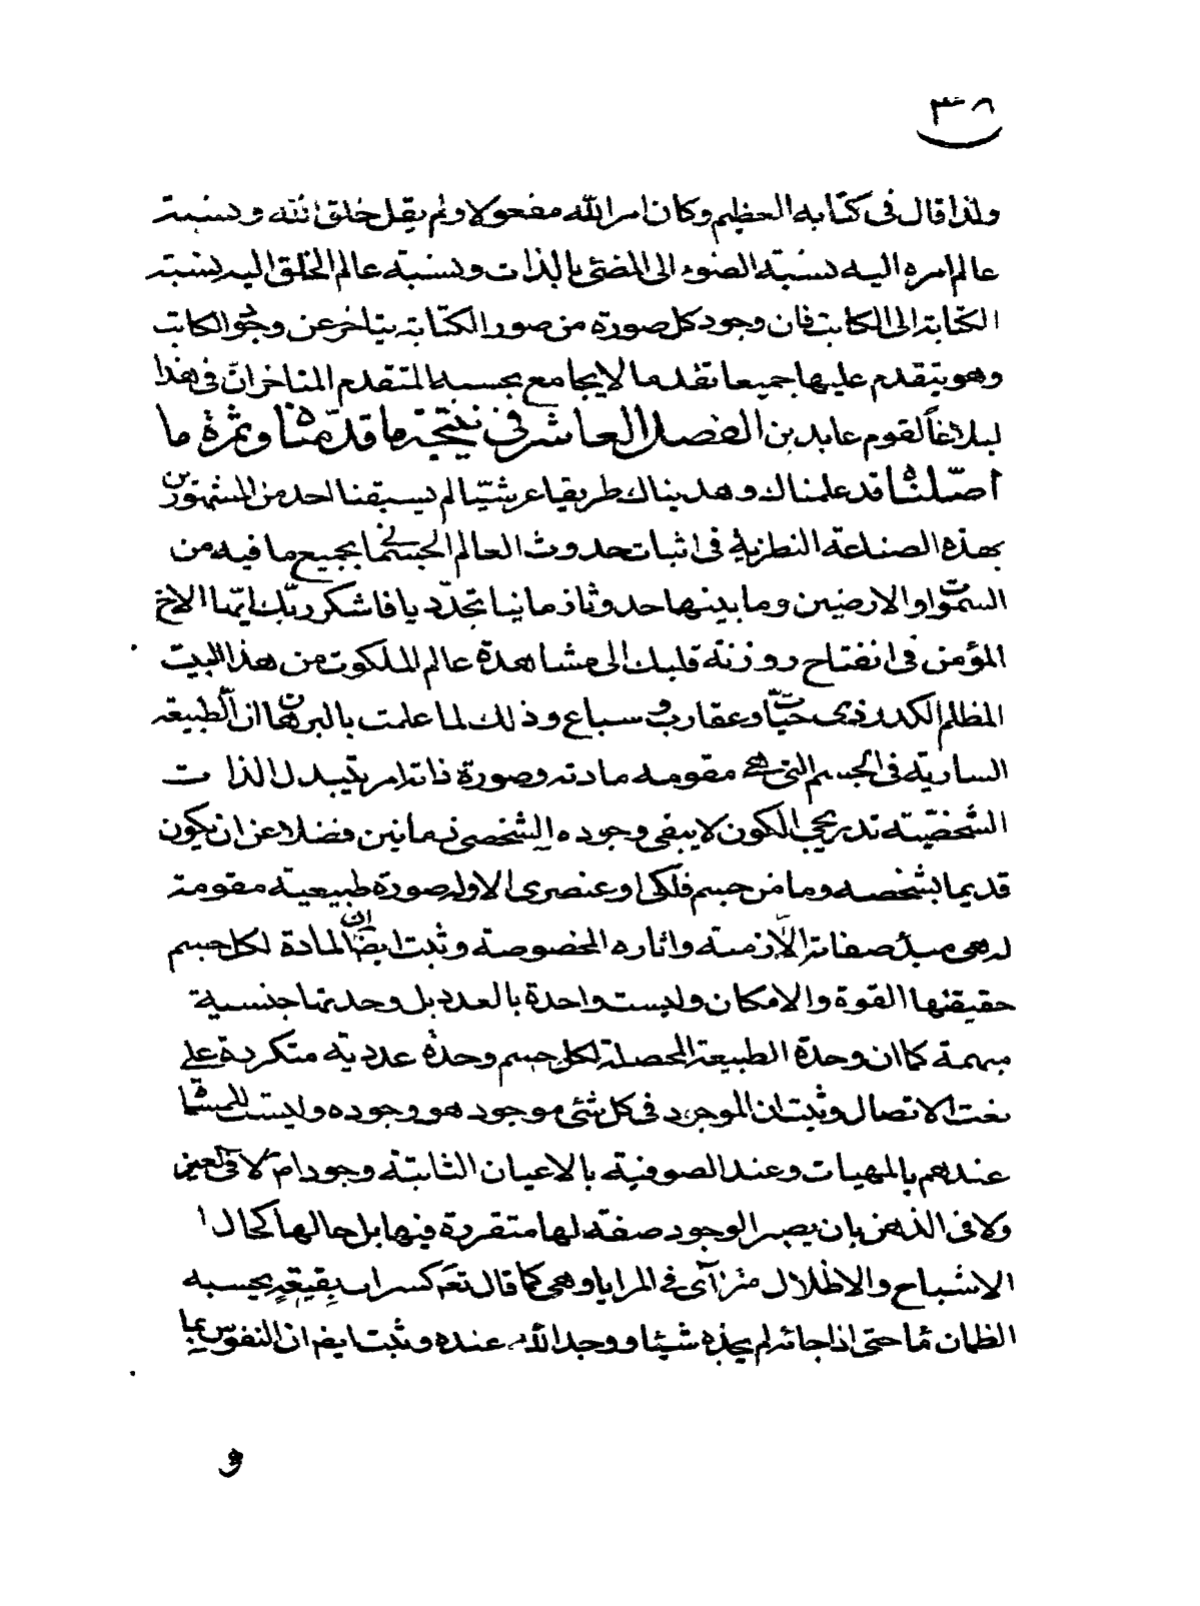 ٣٨
ولذا قال فى كتابه العظيم وكان امر الله مفعولا ولم يقل خلق الله ونسبته
عالم امره اليه نسبته الضوء الى المضئى بالذات ونسبته عالم الخلق اليه نسبته
الكتابة الى الكاتب فان وجود كل صورة من صور الكتابة يتاخر عن وجود الكاتب
وهو يتقدم عليها جميعا تقدما لا يجامع بحسبه المتقدم المتاخر ان فى هذا
لبلاغا لقوم عابدين الفصل العاشر فى نتيجة ما قدمناه وثمرة ما
اصلناه قد علمناك وهديناك طريقا عرشيا لم يسبقنا احد من المشهورين
بهذه الصناعة النظرية فى اثبات حدوث العالم الجسمانى بجميع ما فيه من
السموات والارضين وما بينهما حدوثا زمانيا تجدديا فاشكر ربك ايها الاخ
المؤمن فى انفتاح روزنة قلبك الى مشاهدة عالم الملكوت من هذا البيت
المظلم الكدر ذى حيات وعقارب وسباع وذلك لما علمت بالبرهان ان الطبيعة
السارية فى الجسم التى هى مقومه مادته وصورة ذاته امر يتبدل الذات
الشخصيته تدريجى الكون لا يبقى وجوده الشخصى زمانين فضلا عن ان يكون
قديما بشخصه وما من جسم فلكى او عنصرى الا وله صورة طبيعية مقومة
له هى مبدء صفاته الازمته واثاره المخصوصة وثبت ايضا ان المادة لكل جسم
حقيقتها القوة والامكان وليست واحدة بالعدد بل وحدتها جنسية
مبهمة كما ان وحدة الطبيعة المحصلة لكل جسم وحدة عددية متكررة على
نعت الاتصال وثبت ان الموجود فى كل شئى موجود هو وجوده وليست للمسماة
عندهم بالمهيات وعند الصوفية بالاعيان الثابتة وجود ام لا فى العين
ولا فى الذهن بان يصير الوجود صفة لها متقررة فيها بل حالها كحال ا
الاشباح والاظلال مترآى فى المرايا وهى كما قال تعم كسراب بقيعة يحسبه
الظمان ماء حتى اذا جائه لم يجده شيئا ووجد الله عنده وثبت ايضا ان النفوس بما
و